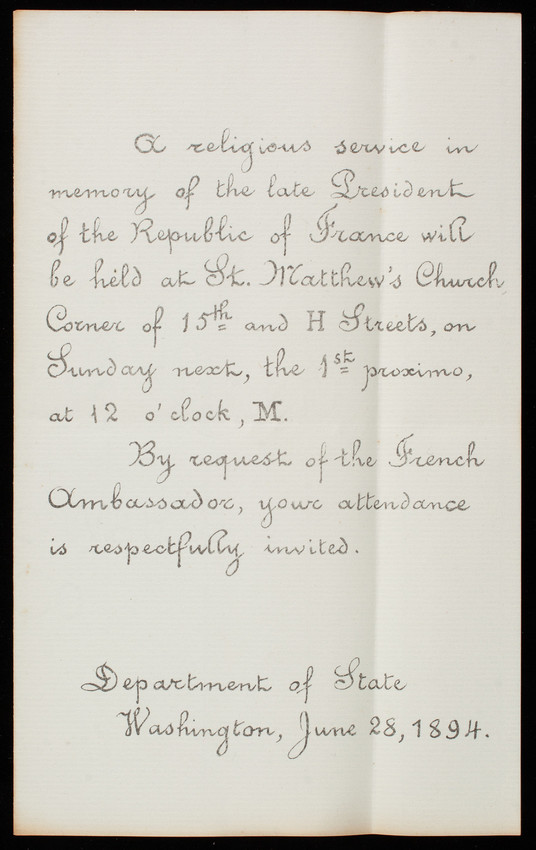 A religious service in
memory of the late President
of the Republic of France will
be held at St. Matthew's Church,
Corner of 15th and H Streets, on
Sunday next, the 1st proximo,
at 12 o'clock, M.
By request of the French
Ambassador, your attendance
is respectfully invited.
Department of State
Washington, June 28, 1894.